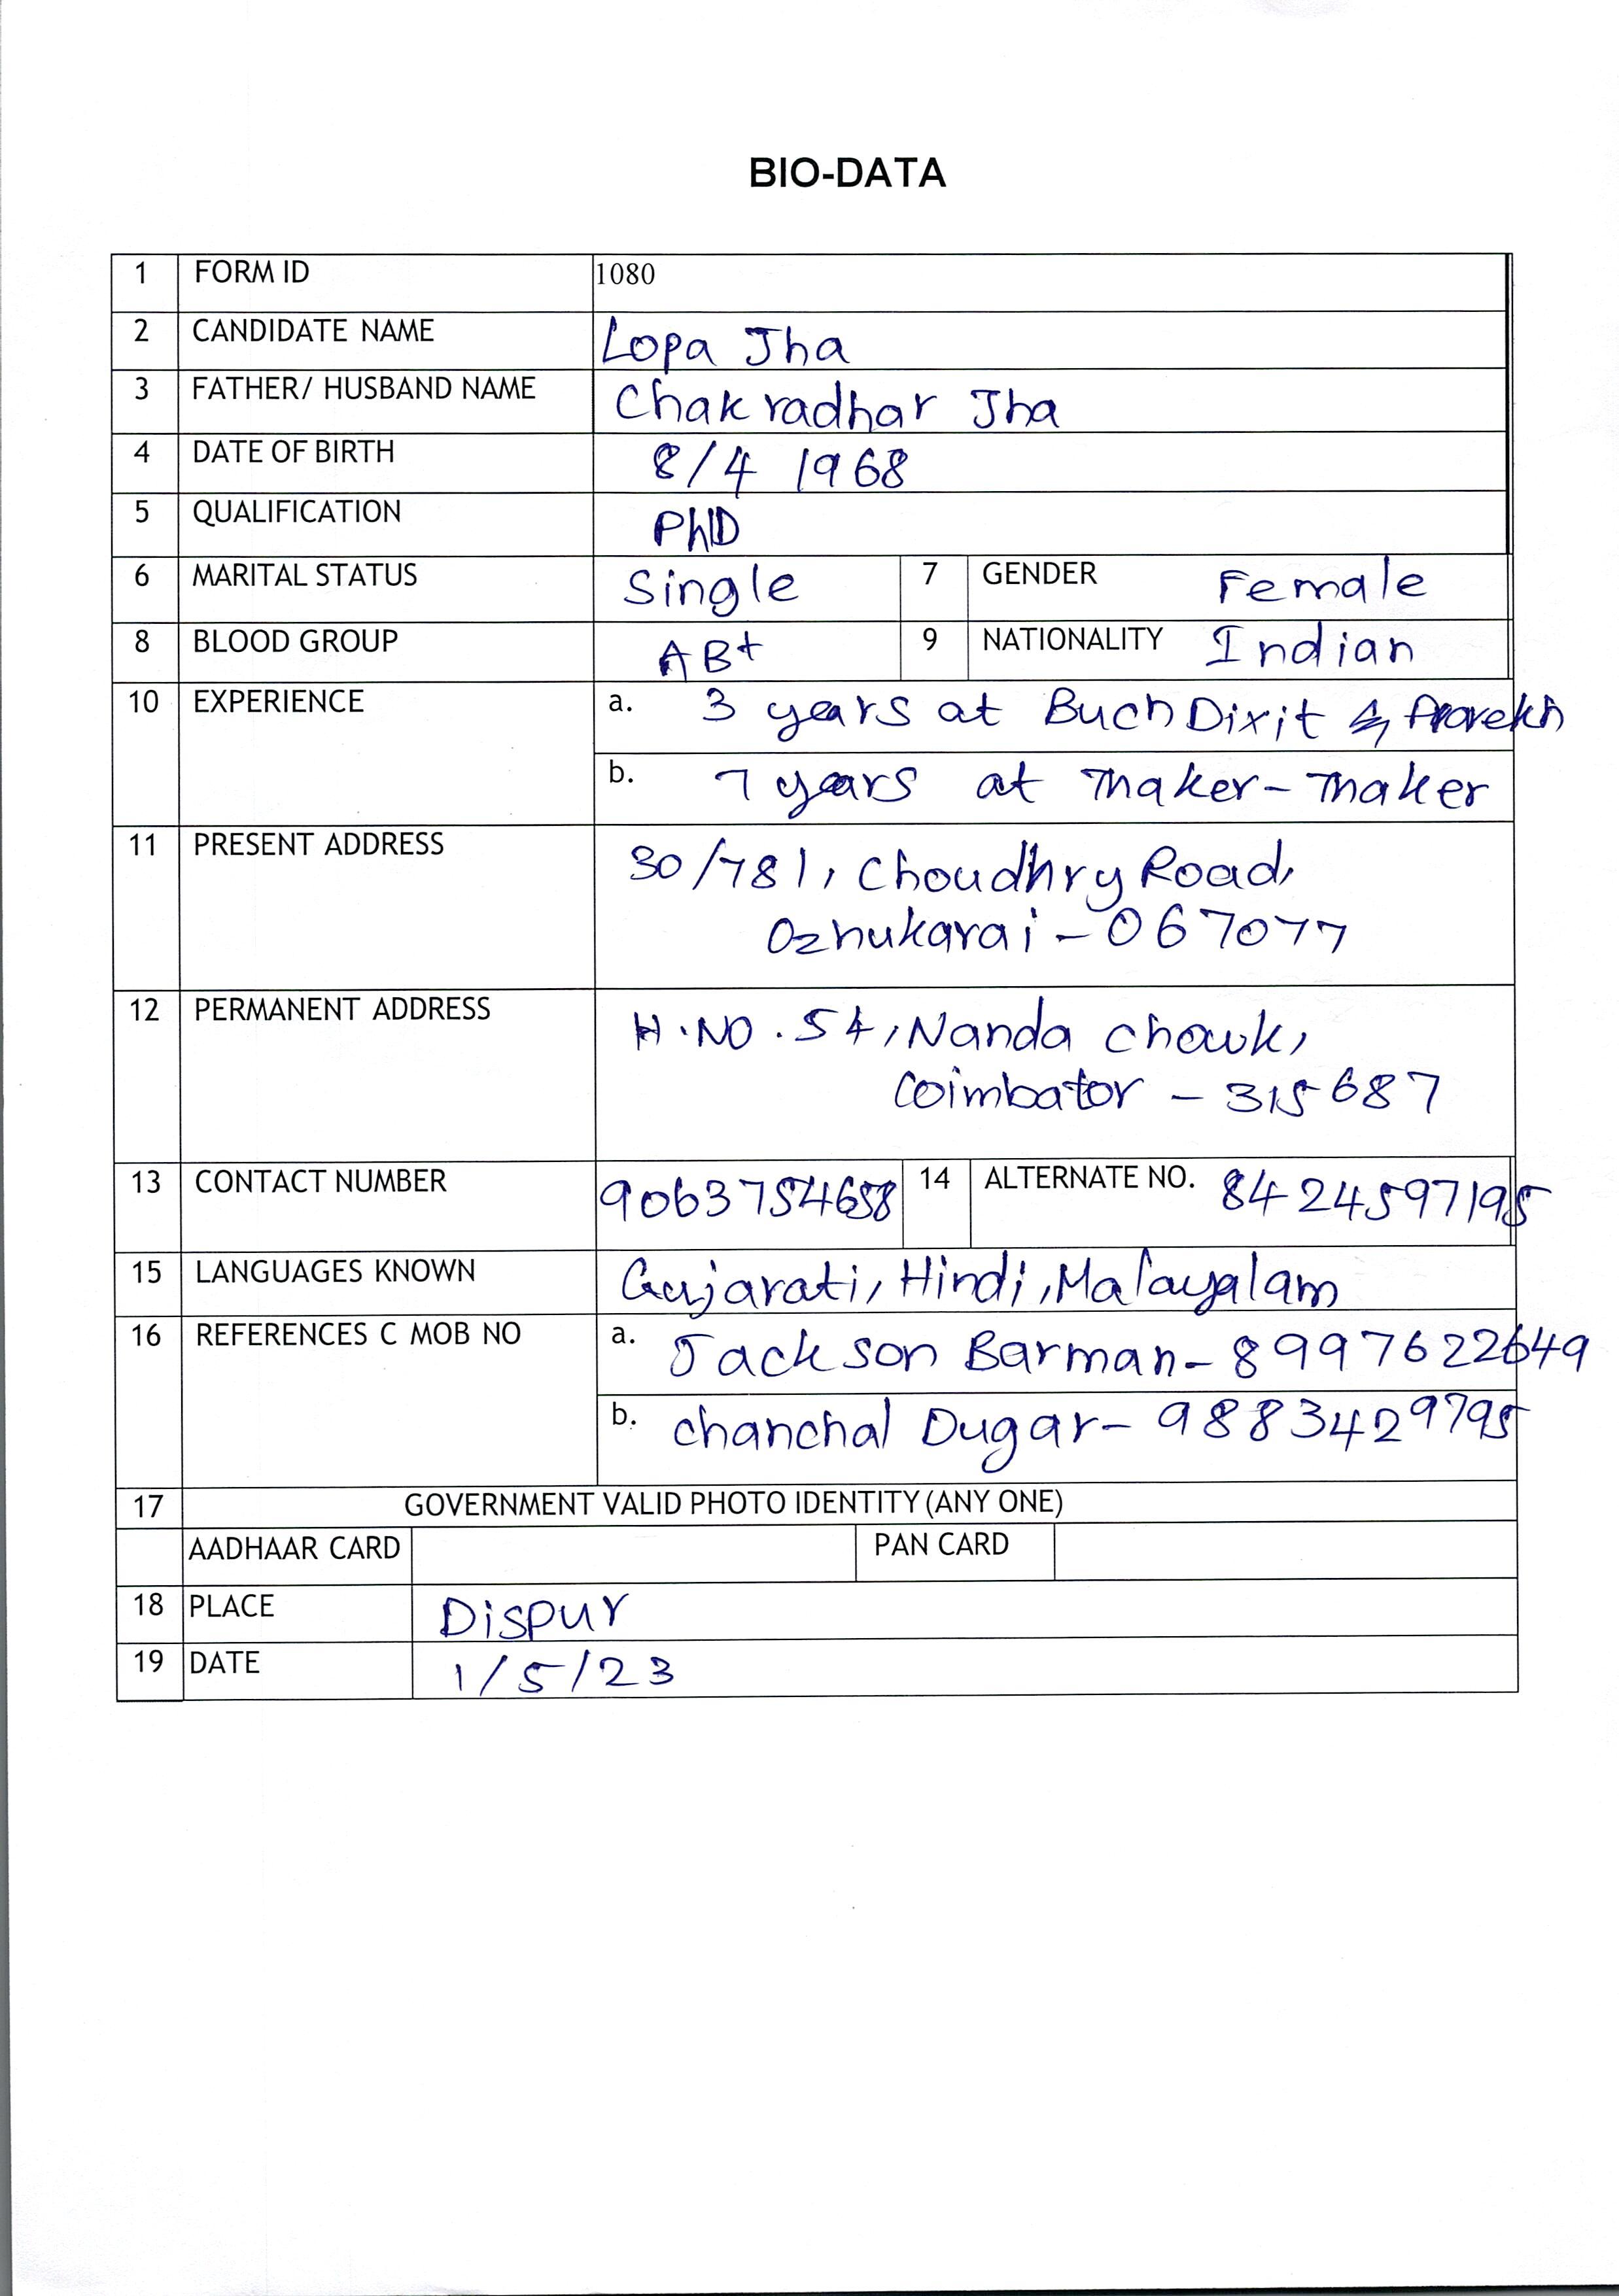 BIO-DATA
1 FORM ID 1080
2 CANDIDATE NAME Lopa Jha
3 FATHER/ HUSBAND NAME Chakradhar Jha
4 DATE OF BIRTH 8/4 1968
5 QUALIFICATION PhD
6 MARITAL STATUS Single 7 GENDER Female
8 BLOOD GROUP AB+ 9 NATIONALITY Indian
10 EXPERIENCE a. 3 years at Buch Dixit &
b. 7 years at Thaker-Thaker
11 PRESENT ADDRESS 30/781, Choudhry Road,
Ozhukarai - 067077
12 PERMANENT ADDRESS H.NO. 54, Nanda Chowk,
Coimbator - 315687
13 CONTACT NUMBER 9063754658 14 ALTERNATE NO. 8424597195
15 LANGUAGES KNOWN Gujarati, Hindi, Malayalam
16 REFERENCES C MOB NO a. Jackson Barman - 8997622649
b. Chanchal Dugar - 9883429795
17 GOVERNMENT VALID PHOTO IDENTITY (ANY ONE)
AADHAAR CARD PAN CARD
18 PLACE Dispur
19 DATE 1/5/23